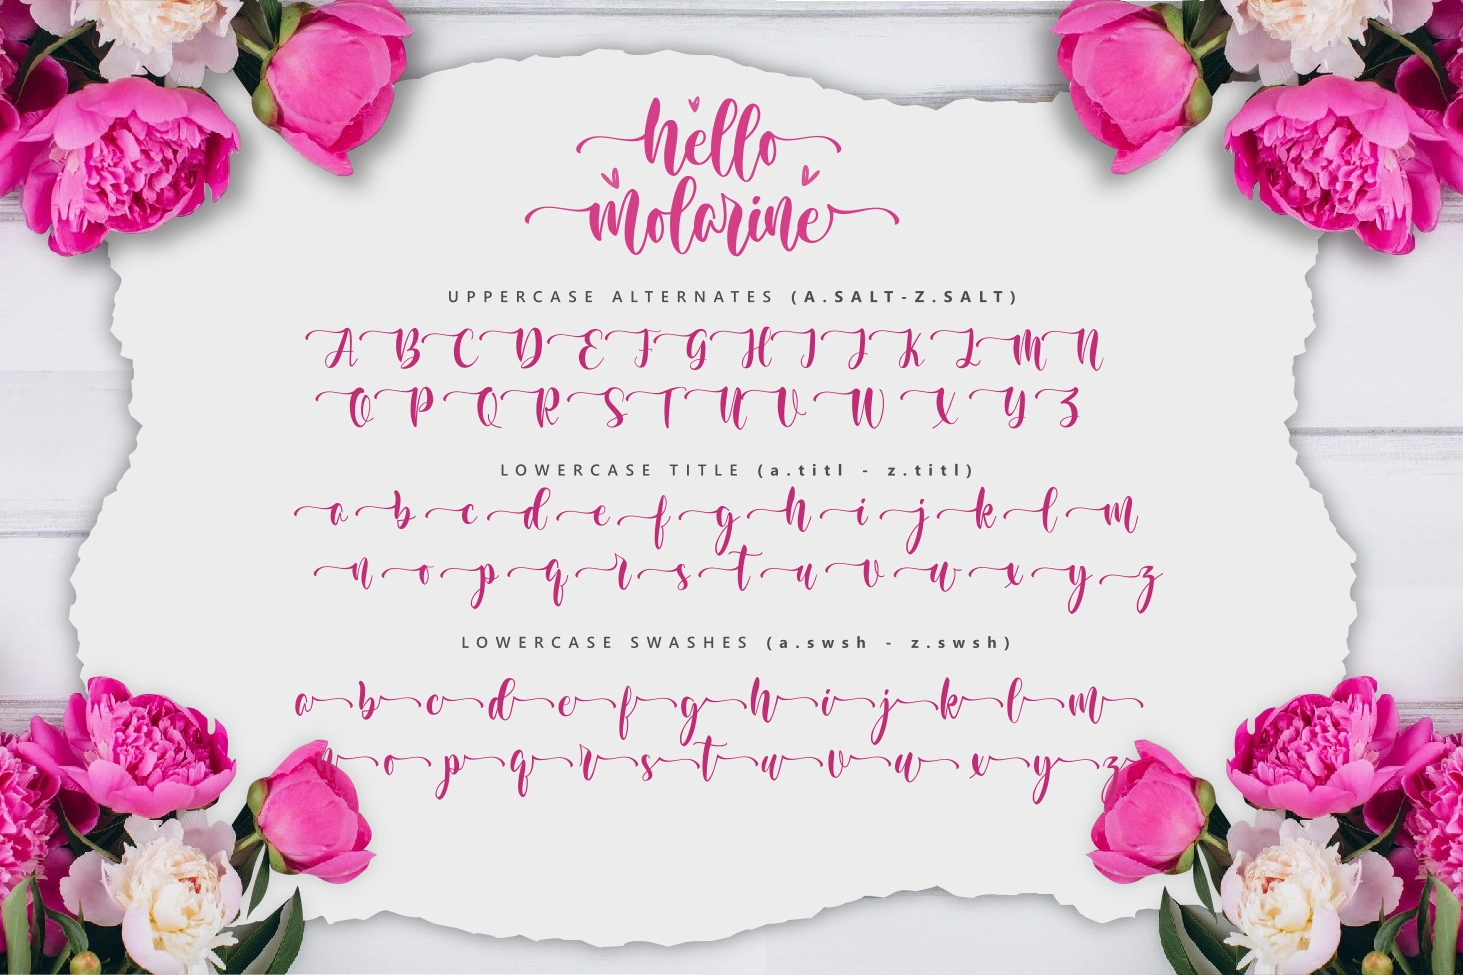 hello
molarine
UPPERCASE ALTERNATES (A.SALT-Z.SALT)
A B C D E F G H I J K L M N
O P Q R S T U V W X Y Z
LOWERCASE TITLE (a.titl - z.titl)
a b c d e f g h i j k l m
n o p q r s t u v w x y z
LOWERCASE SWASHES (a.swsh - z.swsh)
a b c d e f g h i j k l m
n o p q r s t u v w x y z